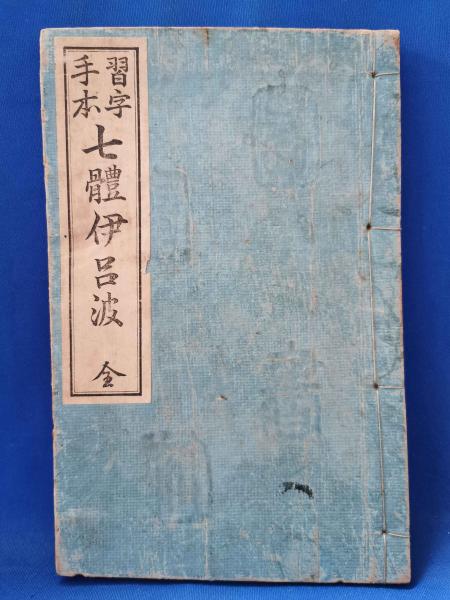 習字
手本
七體伊呂波
全